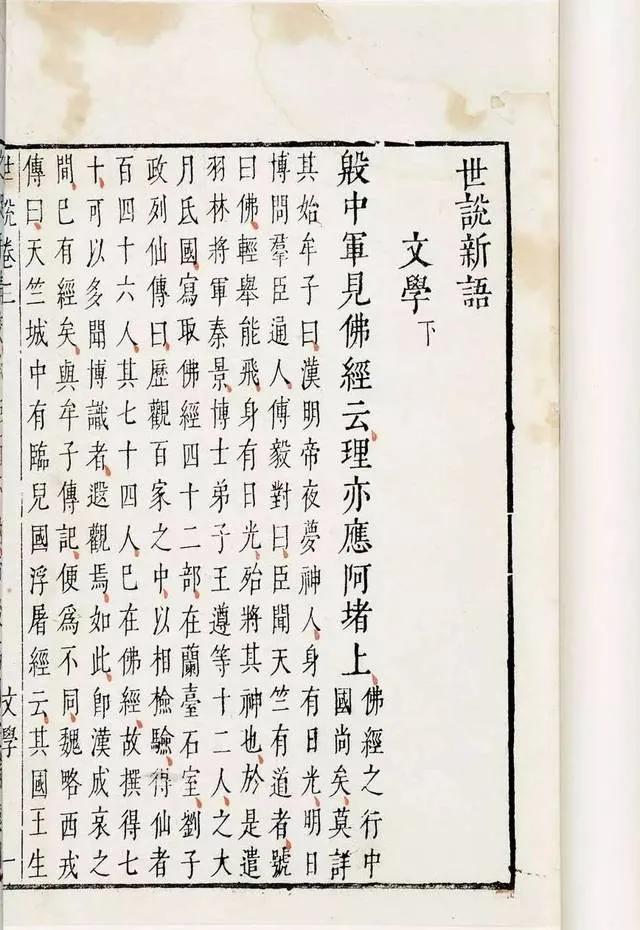 世說新語
文學下
殷中軍見佛經云理亦應阿堵上
佛經之行中
國尚矣莫詳
其始牟子曰漢明帝夜夢神人身有日光明日
博問羣臣通人傅毅對曰臣聞天竺有道者號
曰佛輕舉能飛身有日光殆將其神也於是遣
羽林將軍秦景博士弟子王遵等十二人之大
月氏國寫取佛經四十二部在蘭臺石室劉子
政列仙傳曰歷觀百家之中以相檢驗得仙者
百四十六人其七十四人已在佛經故撰得七
十可以多聞博識者遐觀焉如此即漢成哀之
間已有經矣與牟子傳記便爲不同魏略西戎
傳曰天竺城中有臨兒國浮屠經云其國王生
世說卷 文學 一